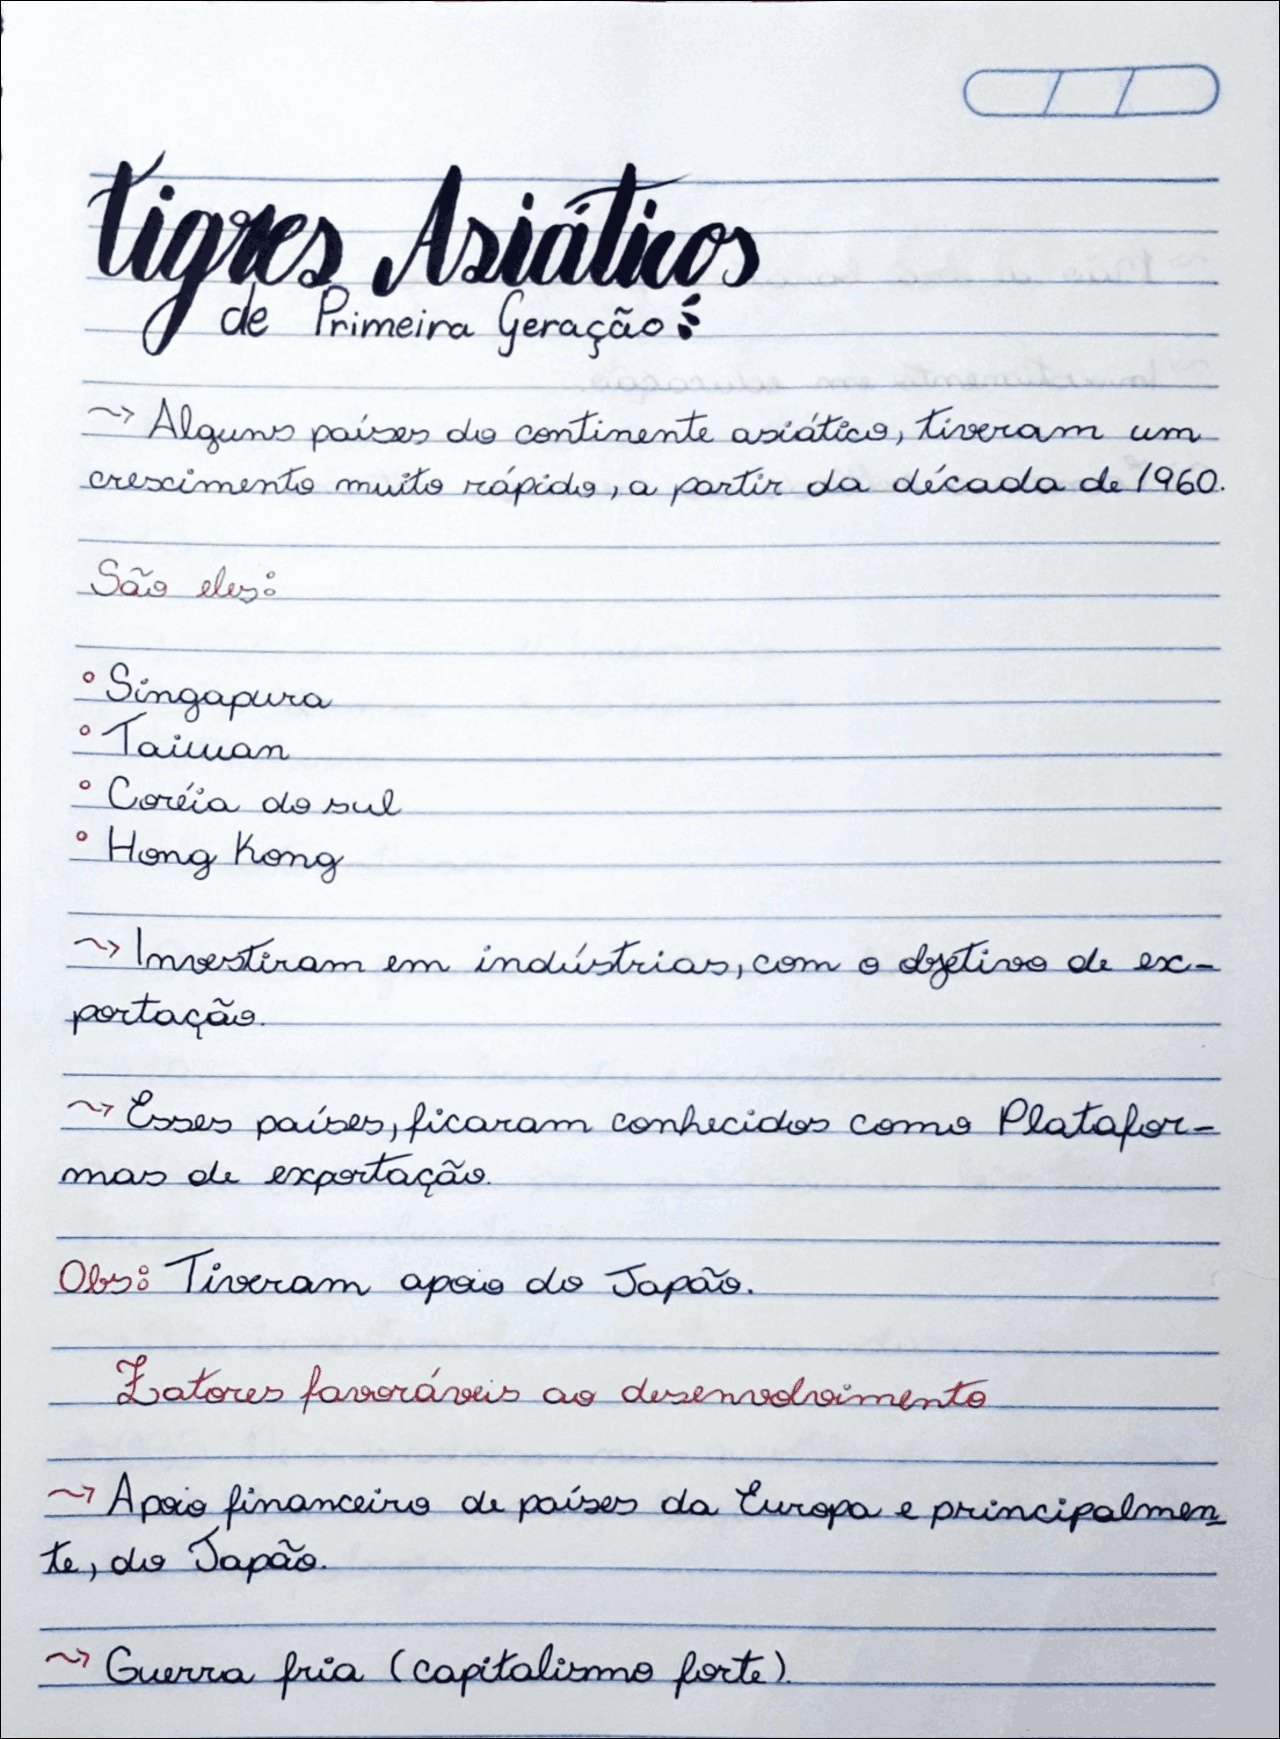 Tigres Asiáticos
de Primeira Geração
~> Alguns países do continente asiático, tiveram um
crescimento muito rápido, a partir da década de 1960.
São eles:
° Singapura
° Taiwan
° Coréia do sul
° Hong Kong
~> Investiram em indústrias, com o objetivo de ex-
portação.
~> Esses países, ficaram conhecidos como Platafor-
mas de exportação.
Obs: Tiveram apoio do Japão.
Fatores favoráveis ao desenvolvimento
~> Apoio financeiro de países da Europa e principalmen-
te, do Japão.
~> Guerra fria (capitalismo forte).